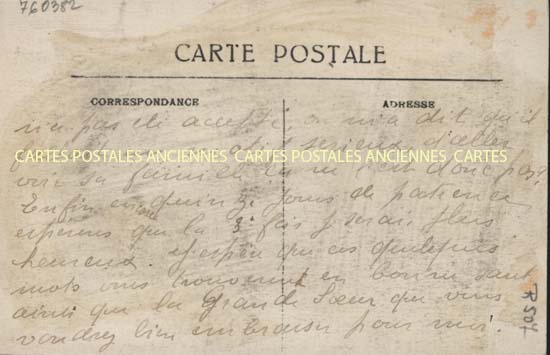 760382
CARTE POSTALE
CORRESPONDANCE
ADRESSE
n'a pas été accepté on m'a dit qu'il
CARTES POSTALES ANCIENNES CARTES POSTALES ANCIENNES CARTES
voir sa famille
Enfin en quinze jours de patience
espérons que la 3e fois je serai plus
heureux. J'espère que ces quelques
mots vous trouveront en bonne santé
ainsi que la Grande Sœur que vous
voudrez bien embrasser pour moi.
R507